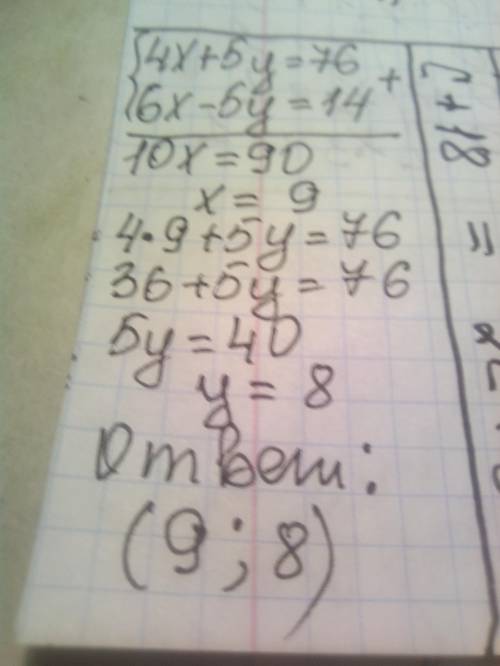 {4x+5y=76
{6x-5y=14 +
10x=90
x= 9
4·9+5y=76
36+5y=76
5y=40
y=8
Ответ:
(9;8)